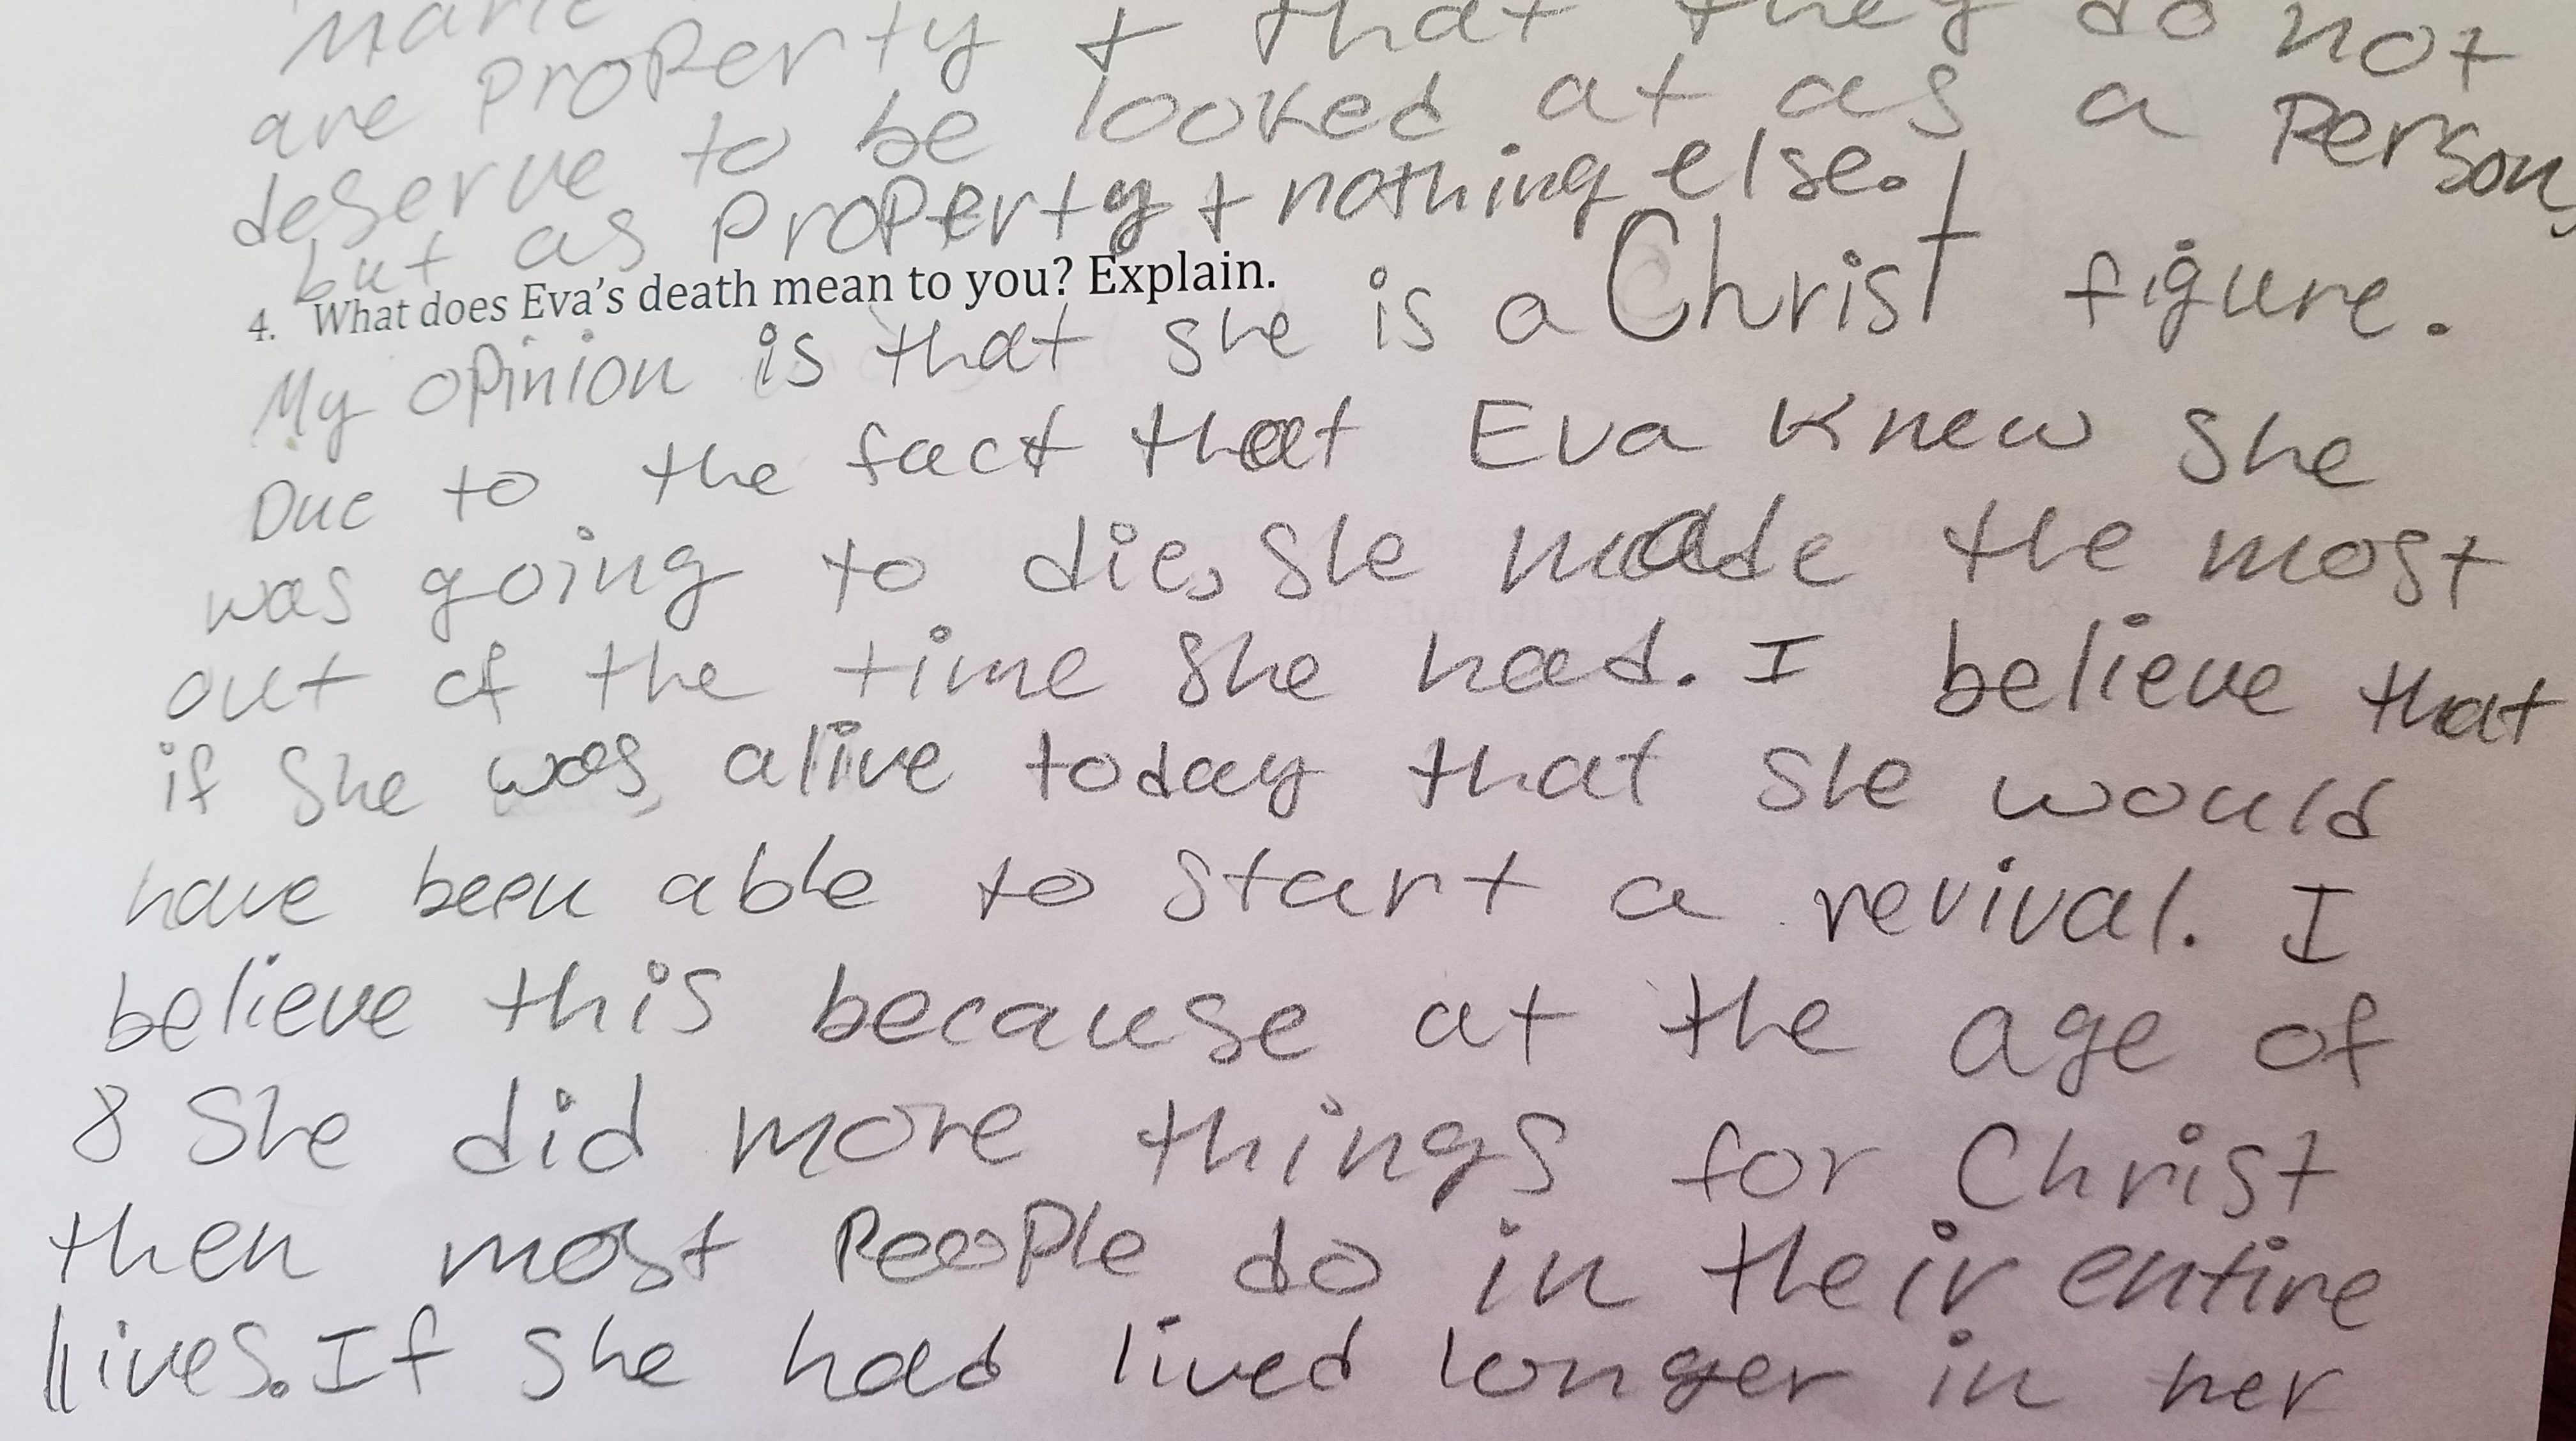 are property + that they do not
deserve to be looked at as a Person,
but as property + nothing else.
4. What does Eva's death mean to you? Explain.
My opinion is that she is a Christ figure.
Due to the fact that Eva knew she
was going to die, she made the most
out of the time she had. I believe that
if she was alive today that she would
have been able to start a revival. I
believe this because at the age of
8 She did more things for Christ
then most People do in their entire
lives. If she had lived longer in her